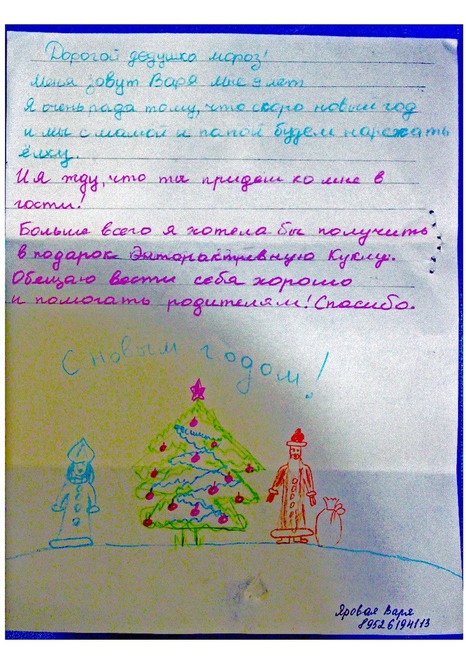 Дорогой дедушка мороз!
Меня зовут Варя мне 9 лет
Я очень рада тому, что скоро новый год
и мы с мамой и папой будем наряжать
ёлку.
И я жду, что ты придеш ко мне в
гости!
Больше всего я хотела бы получить
в подарок Энторактревную Куклу.
Обещаю вести себя хорошо
и помогать родителям! Спасибо.
С новым годом!
Яровая Варя
89526194113